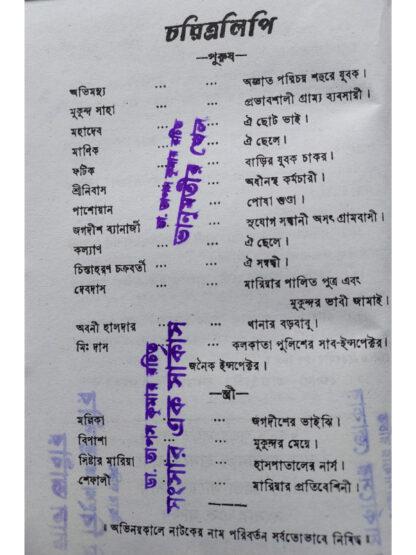 চরিত্রলিপি
—পুরুষ—
অভিমন্যু ... ... অজ্ঞাত পরিচয় শহুরে যুবক।
মুকুন্দ সাহা ... ... প্রভাবশালী গ্রাম্য ব্যবসায়ী।
মহাদেব ... ... ঐ ছোট ভাই।
মাণিক ... ... ঐ ছেলে।
ফটিক ... ... বাড়ির যুবক চাকর।
শ্রীনিবাস ... ... অধীনস্থ কর্মচারী।
পাশোয়ান ... ... পোষা গুণ্ডা।
জগদীশ ব্যানার্জী ... ... সুযোগ সন্ধানী অসৎ গ্রামবাসী।
কল্যাণ ... ... ঐ ছেলে।
চিন্তাহরণ চক্রবর্তী ... ... ঐ সম্বন্ধী।
দেবদাস ... ... মারিয়ার পালিত পুত্র এবং
মুকুন্দর ভাবী জামাই।
অবনী হালদার ... ... থানার বড়বাবু।
মিঃ দাস ... ... কলকাতা পুলিশের সাব-ইন্সপেক্টর।
জনৈক ইন্সপেক্টর।
—স্ত্রী—
মল্লিকা ... ... জগদীশের ভাইঝি।
বিপাশা ... ... মুকুন্দর মেয়ে।
সিষ্টার মারিয়া ... ... হাসপাতালের নার্স।
শেফালী ... ... মারিয়ার প্রতিবেশিনী।
॥ অভিনয়কালে নাটকের নাম পরিবর্তন সর্বতোভাবে নিষিদ্ধ।
ডা. তাপস কুমার রচিত
ভানুমতীর খেল
ডা. তাপস কুমার রচিত
সংসার এক সার্কাস